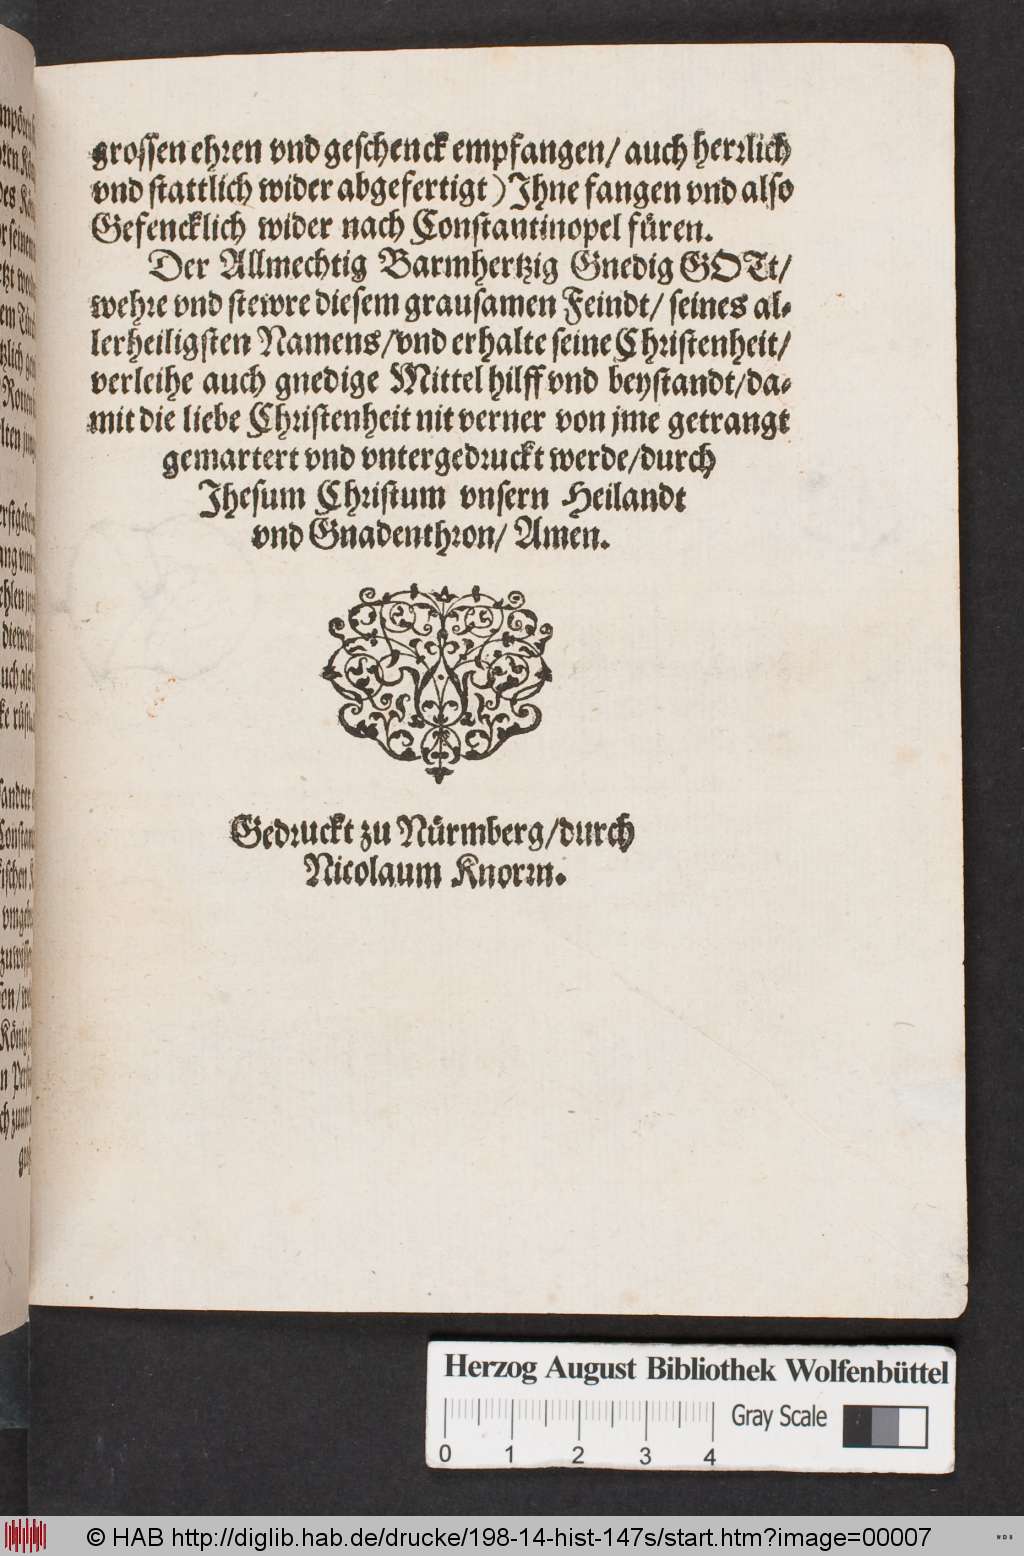 grossen ehren vnd geschenck empfangen/ auch herrlich
vnd stattlich wider abgefertigt) Jhne fangen vnd also
Gefencklich wider nach Constantinopel füren.
Der Allmechtig Barmhertzig Gnedig GOTt/
wehre vnd stewre diesem grausamen Feindt/ seines al-
lerheiligsten Namens/ vnd erhalte seine Christenheit/
verleihe auch gnedige Mittel hilff vnd beystandt/ da-
mit die liebe Christenheit nit verner von jme getrangt
gemartert vnd vntergedruckt werde/ durch
Jhesum Christum vnsern Heilandt
vnd Gnadenthron/ Amen.
Gedruckt zu Nürmberg/ durch
Nicolaum Knorrn.
Herzog August Bibliothek Wolfenbüttel
Gray Scale
0 1 2 3 4
© HAB http://diglib.hab.de/drucke/198-14-hist-147s/start.htm?image=00007